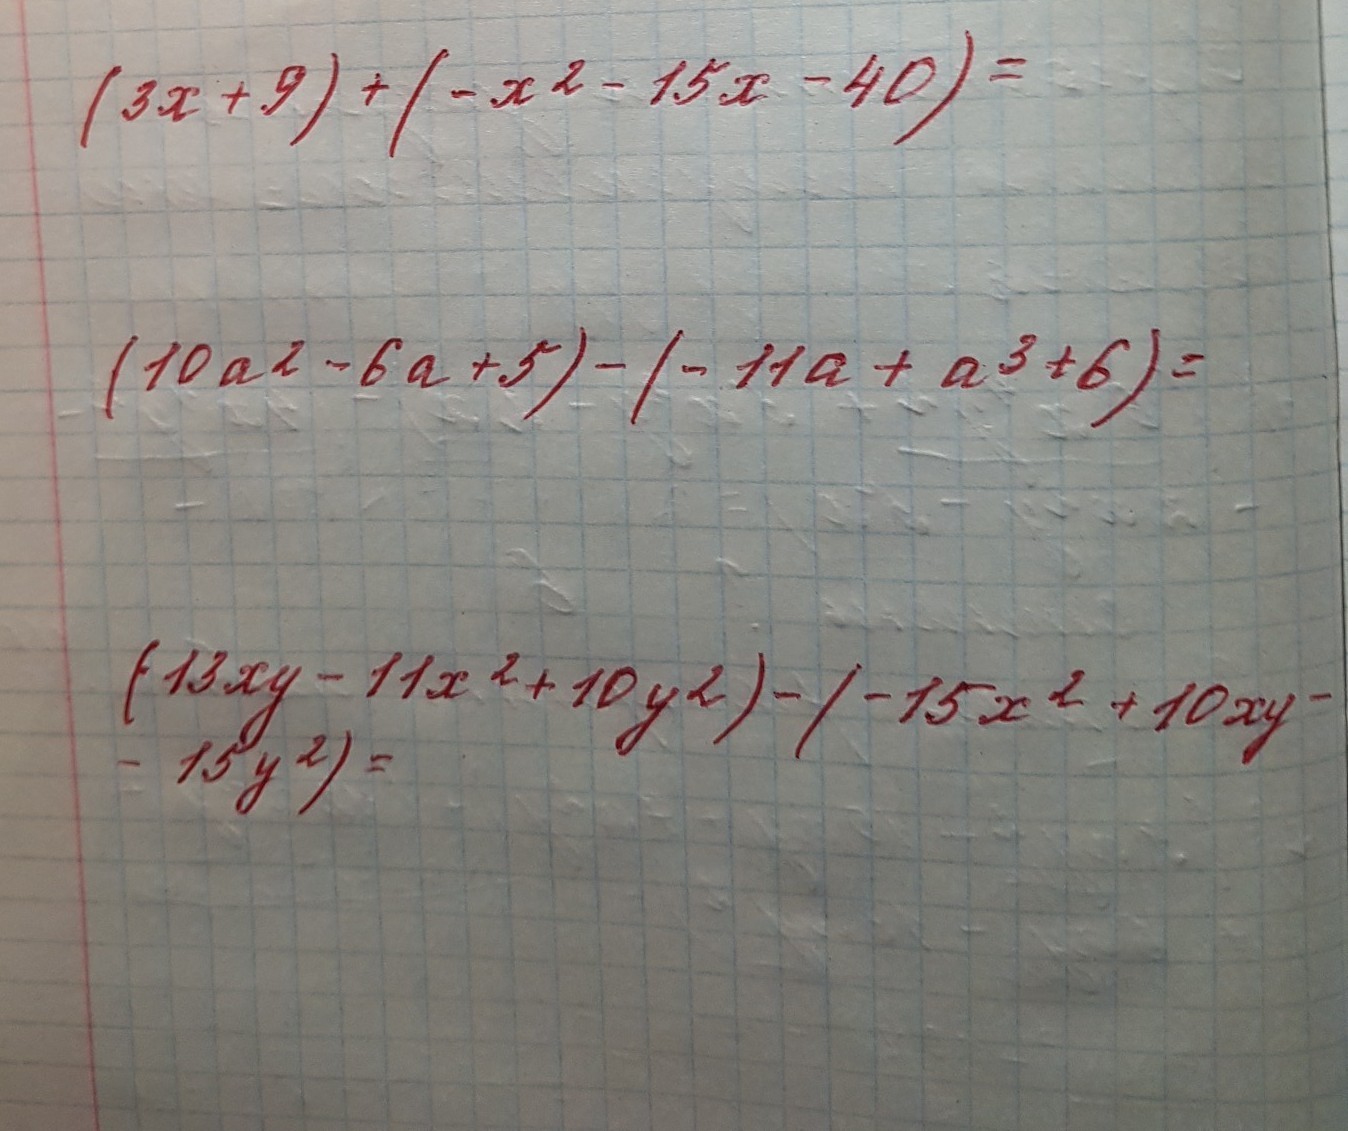 (3x+9)+(-x²-15x-40)=
(10a²-6a+5)-(-11a+a³+6)=
(13xy-11x²+10y²)-(-15x²+10xy-
-15y²)=